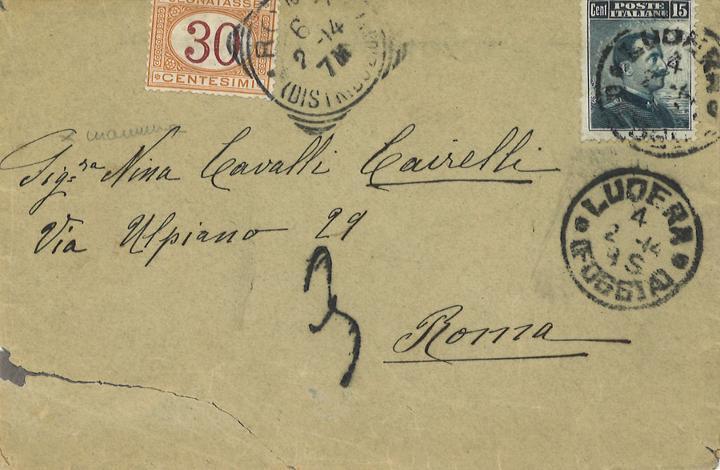 SEGNATASSE
30
CENTESIMI
6
2-14
7M
(DISTRIBUZIONE)
Cent POSTE 15
ITALIANE
Sig:ra Nina Cavalli Cairelli
Via Ulpiano 29
LUCERA
4
2-14
(FOGGIA)
3
Roma